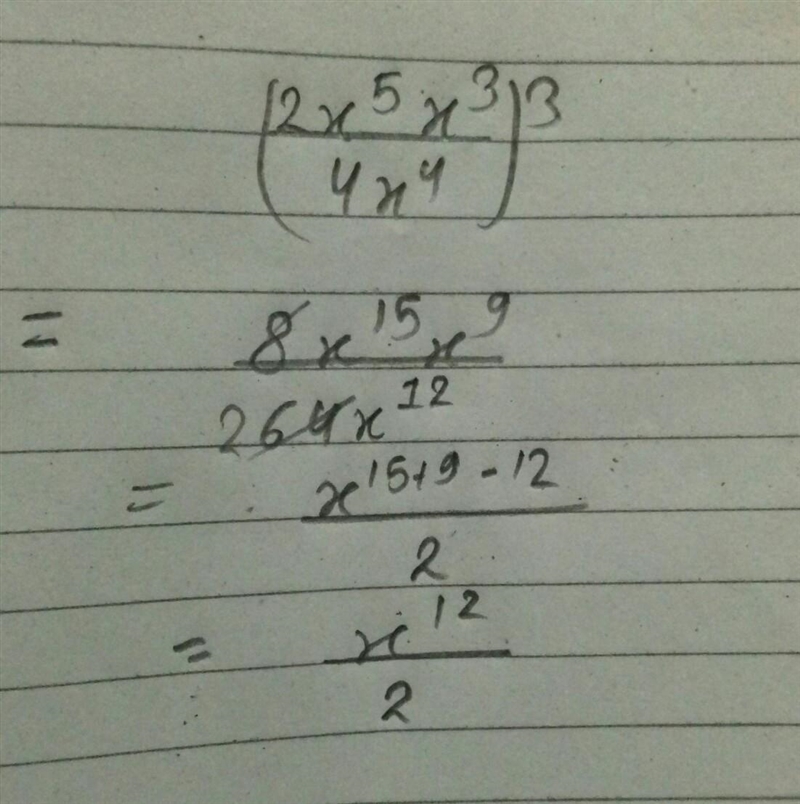 (2x⁵ x³ / 4x⁴)³
= 8x¹⁵x⁹ / 2 64x¹²
= x¹⁵⁺⁹⁻¹² / 2
= x¹² / 2